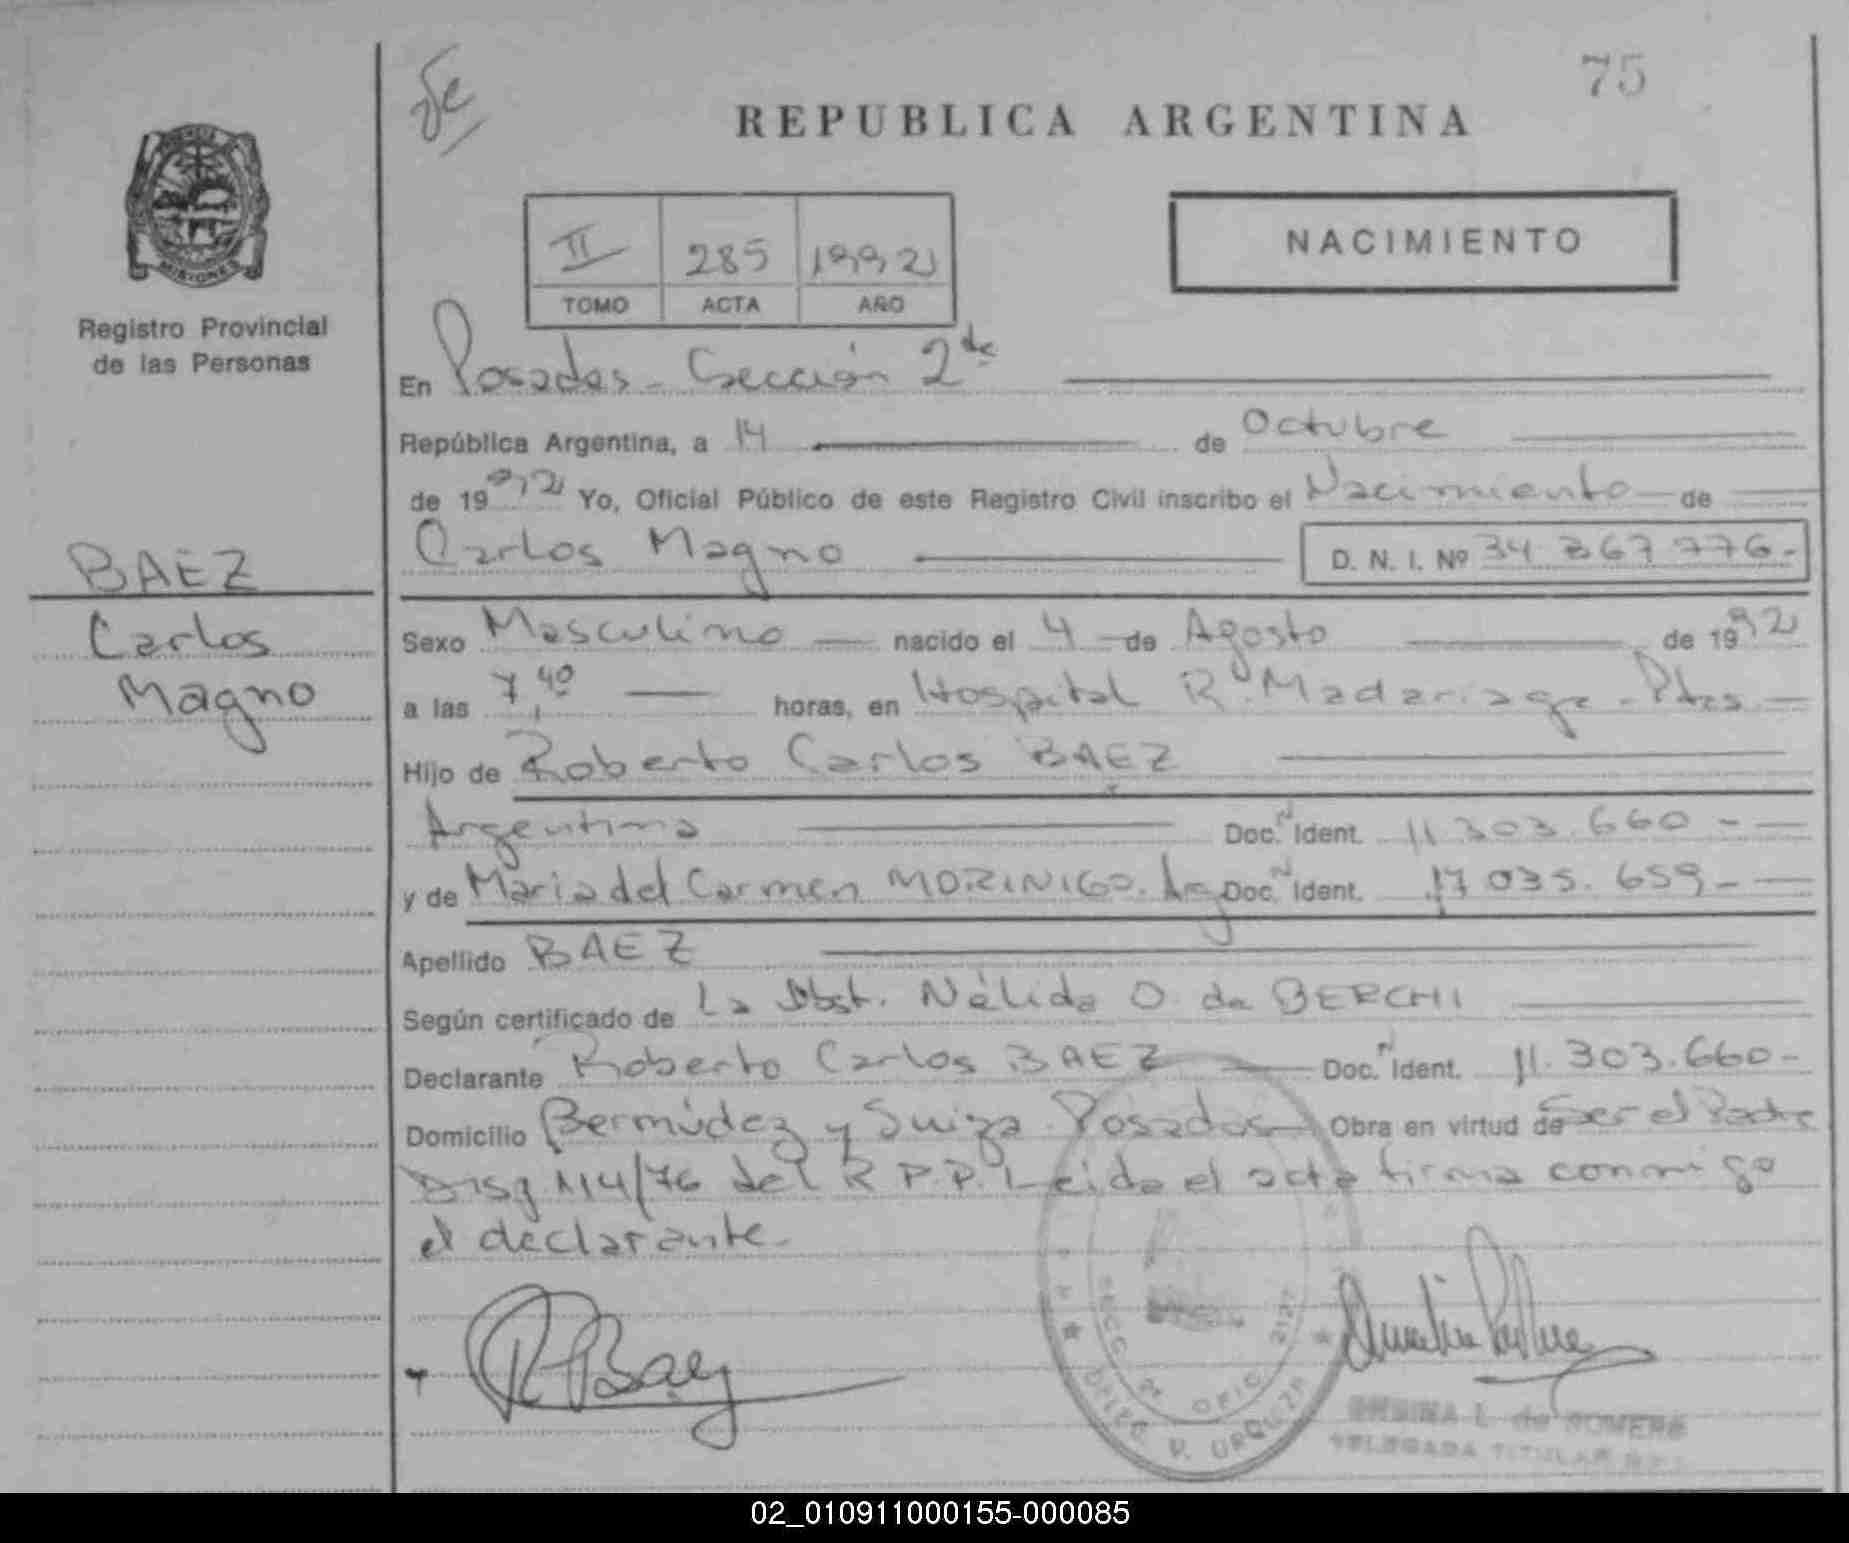 75
REPUBLICA ARGENTINA
MISIONES
Registro Provincial
de las Personas
II 285 1992
TOMO ACTA AÑO
NACIMIENTO
En Posadas - Sección 2da
República Argentina, a 14 de Octubre
de 1992 Yo, Oficial Público de este Registro Civil inscribo el Nacimiento de
Carlos Magno D. N. I. Nº 34 367 776.-
BAEZ
Carlos
Magno
Sexo Masculino nacido el 4 de Agosto de 1992
a las 7,40 horas, en Hospital R. Madariaga - Pdas
Hijo de Roberto Carlos BAEZ
Argentino Doc. Ident. 11.303.660 -
y de Maria del Carmen MORINIGO. Arg Doc. Ident. 17.035.659 -
Apellido BAEZ
Según certificado de La Obst. Nélida O. de BERCHI
Declarante Roberto Carlos BAEZ Doc. Ident. 11.303.660 -
Domicilio Bermúdez y Suiza Posadas Obra en virtud de Ser el Padre
Disp 114/76 del R.P.P. Leida el acta firma conmigo
el declarante.
R Baez
SECC 2ª OFIC 2127
DPLEG P. URQUIZA
L. de ROMERO
DELEGADA TITULAR
02_010911000155-000085